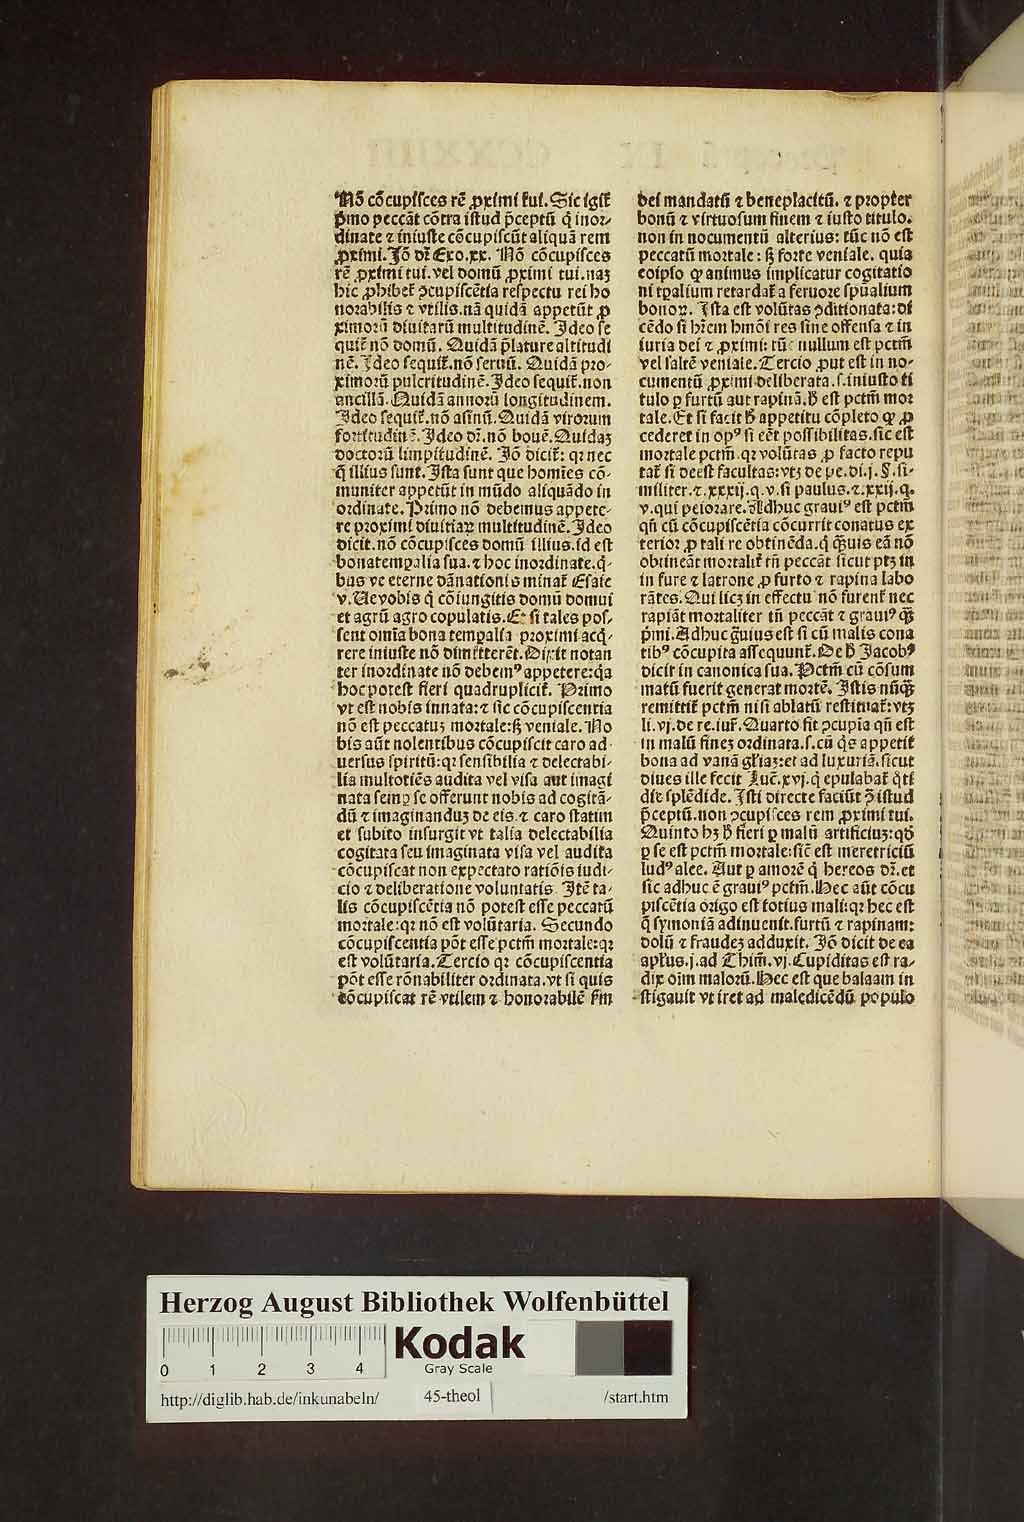 Nõ cõcupiſces rẽ ꝓximi ſui. Sic igiꝉ
p̃mo peccãt cõtra iſtud p̃ceptũ q̃ inor-
dinate ⁊ iniuſte cõcupiſcũt aliquã rem
ꝓximi. Jõ dr̃ Exo.xx. Nõ cõcupiſces
rẽ ꝓximi tui. vel domũ ꝓximi tui. naꝫ
hic ꝓhibet᷑ ↄcupiſcẽtia reſpectu rei ho
norabilis ⁊ vtilis. nã quidã appetũt ꝓ
ximorũ diuitarũ multitudinẽ. Jdeo ſe
quit᷑ nõ domũ. Quidã p̃lature altitudi
nẽ. Jdeo ſequit᷑. nõ ſeruũ. Quidã pro-
ximorũ pulcritudinẽ. Jdeo ſequit᷑. non
ancillã. Quidã annorũ longitudinem.
Jdeo ſequit᷑. nõ aſinũ. Quidã virorum
fortitudinẽ. Jdeo dr̃. nõ bouẽ. Quidaꝫ
doctorũ limpitudinẽ. Jõ dicit᷑: qꝛ nec
q̃ illius ſunt. Jſta ſunt que homĩes cõ-
muniter appetũt in mũdo aliquãdo in
ordinate. Primo nõ debemus appete-
re proximi diuitiaꝝ multitudinẽ. Jdeo
dicit. nõ cõcupiſces domũ illius. id eſt
bona tempalia ſua. ⁊ hoc inordinate. q̃-
bus ve eterne dãnationis minat᷑ Eſaie
v. Ue vobis q̃ cõiungitis domũ domui
et agrũ agro copulatis. Et ſi tales poſ-
ſent om̃ia bona tempalia proximi acq̃-
rere iniuſte nõ dimitterẽt. Dixit notan
ter inordinate nõ debemꝰ appetere: q̃a
hoc poteſt fieri quadruplicit᷑. Primo
vt eſt nobis innata: ⁊ ſic cõcupiſcentia
nõ eſt peccatuꝫ mortale: ſꝫ veniale. No
bis aũt nolentibus cõcupiſcit caro ad-
uerſus ſpiritũ: qꝛ ſenſibilia ⁊ delectabi-
lia multotiẽs audita vel viſa aut imagi
nata ſemꝑ ſe offerunt nobis ad cogitã-
dũ ⁊ imaginanduꝫ de eis. ⁊ caro ſtatim
et ſubito inſurgit vt talia delectabilia
cogitata ſeu imaginata viſa vel audita
cõcupiſcat non expectato ratiõis iudi-
cio ⁊ deliberatione voluntatis. Jtẽ ta-
lis cõcupiſcẽtia nõ poteſt eſſe peccatũ
mortale: qꝛ nõ eſt volũtaria. Secundo
cõcupiſcentia põt eſſe pctm̃ mortale: qꝛ
eſt volũtaria. Tercio qꝛ cõcupiſcentia
põt eſſe rõnabiliter ordinata. vt ſi quis
cõcupiſcat rẽ vtilem ⁊ honorabilẽ ſm̃
dei mandatũ ⁊ beneplacitũ. ⁊ propter
bonũ ⁊ virtuoſum finem ⁊ iuſto titulo.
non in nocumentũ alterius: tũc nõ eſt
peccatũ mortale: ſꝫ forte veniale. quia
eoipſo ꝙ animus implicatur cogitatio
ni tꝑalium retardat᷑ a feruore ſpũalium
bonoꝝ. Jſta eſt volũtas ↄditionata: di
cẽdo ſi hr̃em hmõi res ſine offenſa ⁊ in
iuria dei ⁊ ꝓximi: tũc nullum eſt pctm̃
vel ſaltẽ veniale. Tercio ꝓut eſt in no-
cumentũ ꝓximi deliberata. ſ. iniuſto ti
tulo ꝑ furtũ aut rapinã. h̃ eſt pctm̃ mor
tale. Et ſi facit h̃ appetitu cõpleto ꝙ ꝓ
cederet in opꝰ ſi eẽt poſſibilitas. ſic eſt
mortale pctm̃. qꝛ volũtas ꝓ facto repu
tat᷑ ſi deeſt facultas: vtꝫ de pe. di. j. §. ſi-
militer. ⁊. xxxij. q. v. ſi paulus. ⁊. xxij. q.
v. qui peiorare. Adhuc grauiꝰ eſt pctm̃
qñ cũ cõcupiſcẽtia cõcurrit conatus ex
terior ꝓ tali re obtinẽda. q̃ q̃uis eã nõ
obtineãt mortalit᷑ tñ peccãt ſicut ptꝫ in
in fure ⁊ latrone ꝓ furto ⁊ rapina labo
rãtes. Qui licꝫ in effectu nõ furent᷑ nec
rapiãt mortaliter tñ peccãt ⁊ grauiꝰ q̃ꝫ
p̃mi. Adhuc g̃uius eſt ſi cũ malis cona
tibꝰ cõcupita aſſequunt᷑. De h̃ Jacobꝰ
dicit in canonica ſua. Pctm̃ cũ cõſum
matũ fuerit generat mortẽ. Jſtis nũq̃ꝫ
remittit᷑ pctm̃ niſi ablatũ reſtituat᷑: vtꝫ
li. vj. de re. iur᷑. Quarto fit ↄcupĩa qñ eſt
in malũ fineꝫ ordinata. ſ. cũ q̃s appetit᷑
bona ad vanã gl̃iaꝫ: et ad luxuriã. ſicut
diues ille fecit Luẽ. xvj. q̃ epulabat᷑ q̃ti
die ſplẽdide. Jſti directe faciũt ↄ̃ iſtud
p̃ceptũ. non ↄcupiſces rem ꝓximi tui.
Quinto hꝫ h̃ fieri ꝑ malũ artificiuꝫ: qd̃
ꝑ ſe eſt pctm̃ mortale: ſic̃ eſt meretriciũ
ludꝰ alee. Aut ꝑ amorẽ q̃ hereos dr̃. et
ſic adhuc ẽ grauiꝰ pctm̃. Hec aũt cõcu
piſcẽtia origo eſt totius mali: qꝛ hec eſt
q̃ ſymoniã adinuenit. furtũ ⁊ rapinam:
dolũ ⁊ fraudeꝫ adduxit. Jõ dicit de ea
apl̃us. j. ad Thim̃. vj. Cupiditas eſt ra-
dix oĩm malorũ. Hec eſt que balaam in
ſtigauit vt iret ad maledicẽdũ populo
Herzog August Bibliothek Wolfenbüttel
0 1 2 3 4
Kodak
Gray Scale
http://diglib.hab.de/inkunabeln/ 45-theol /start.htm